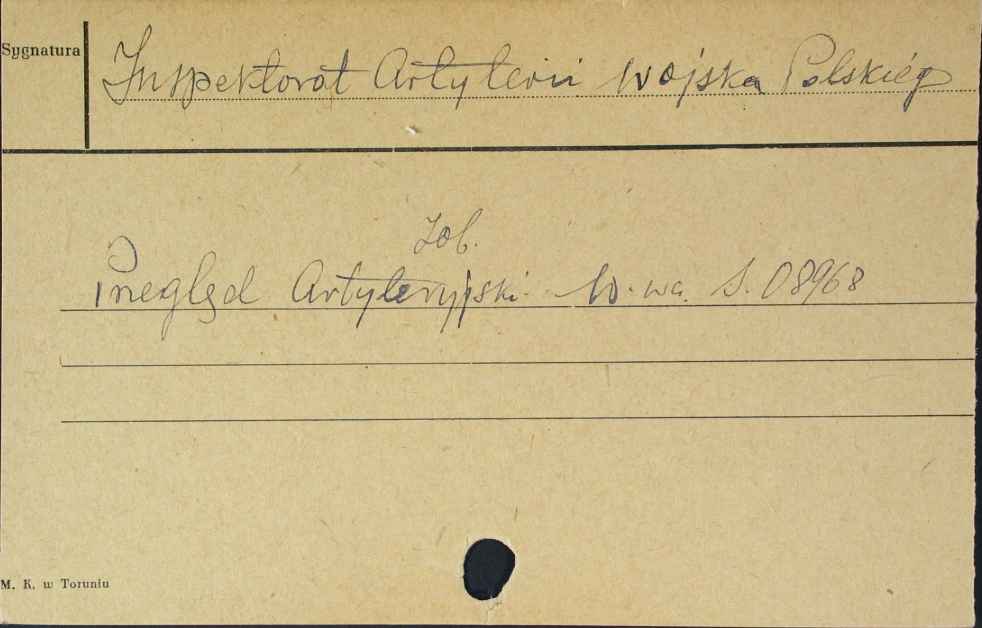 Sygnatura
Inspektorat Artylerii Wojska Polskiég
Zob.
Przegląd Artyleryjski W-wa. S. 08968
M. K. w Toruniu